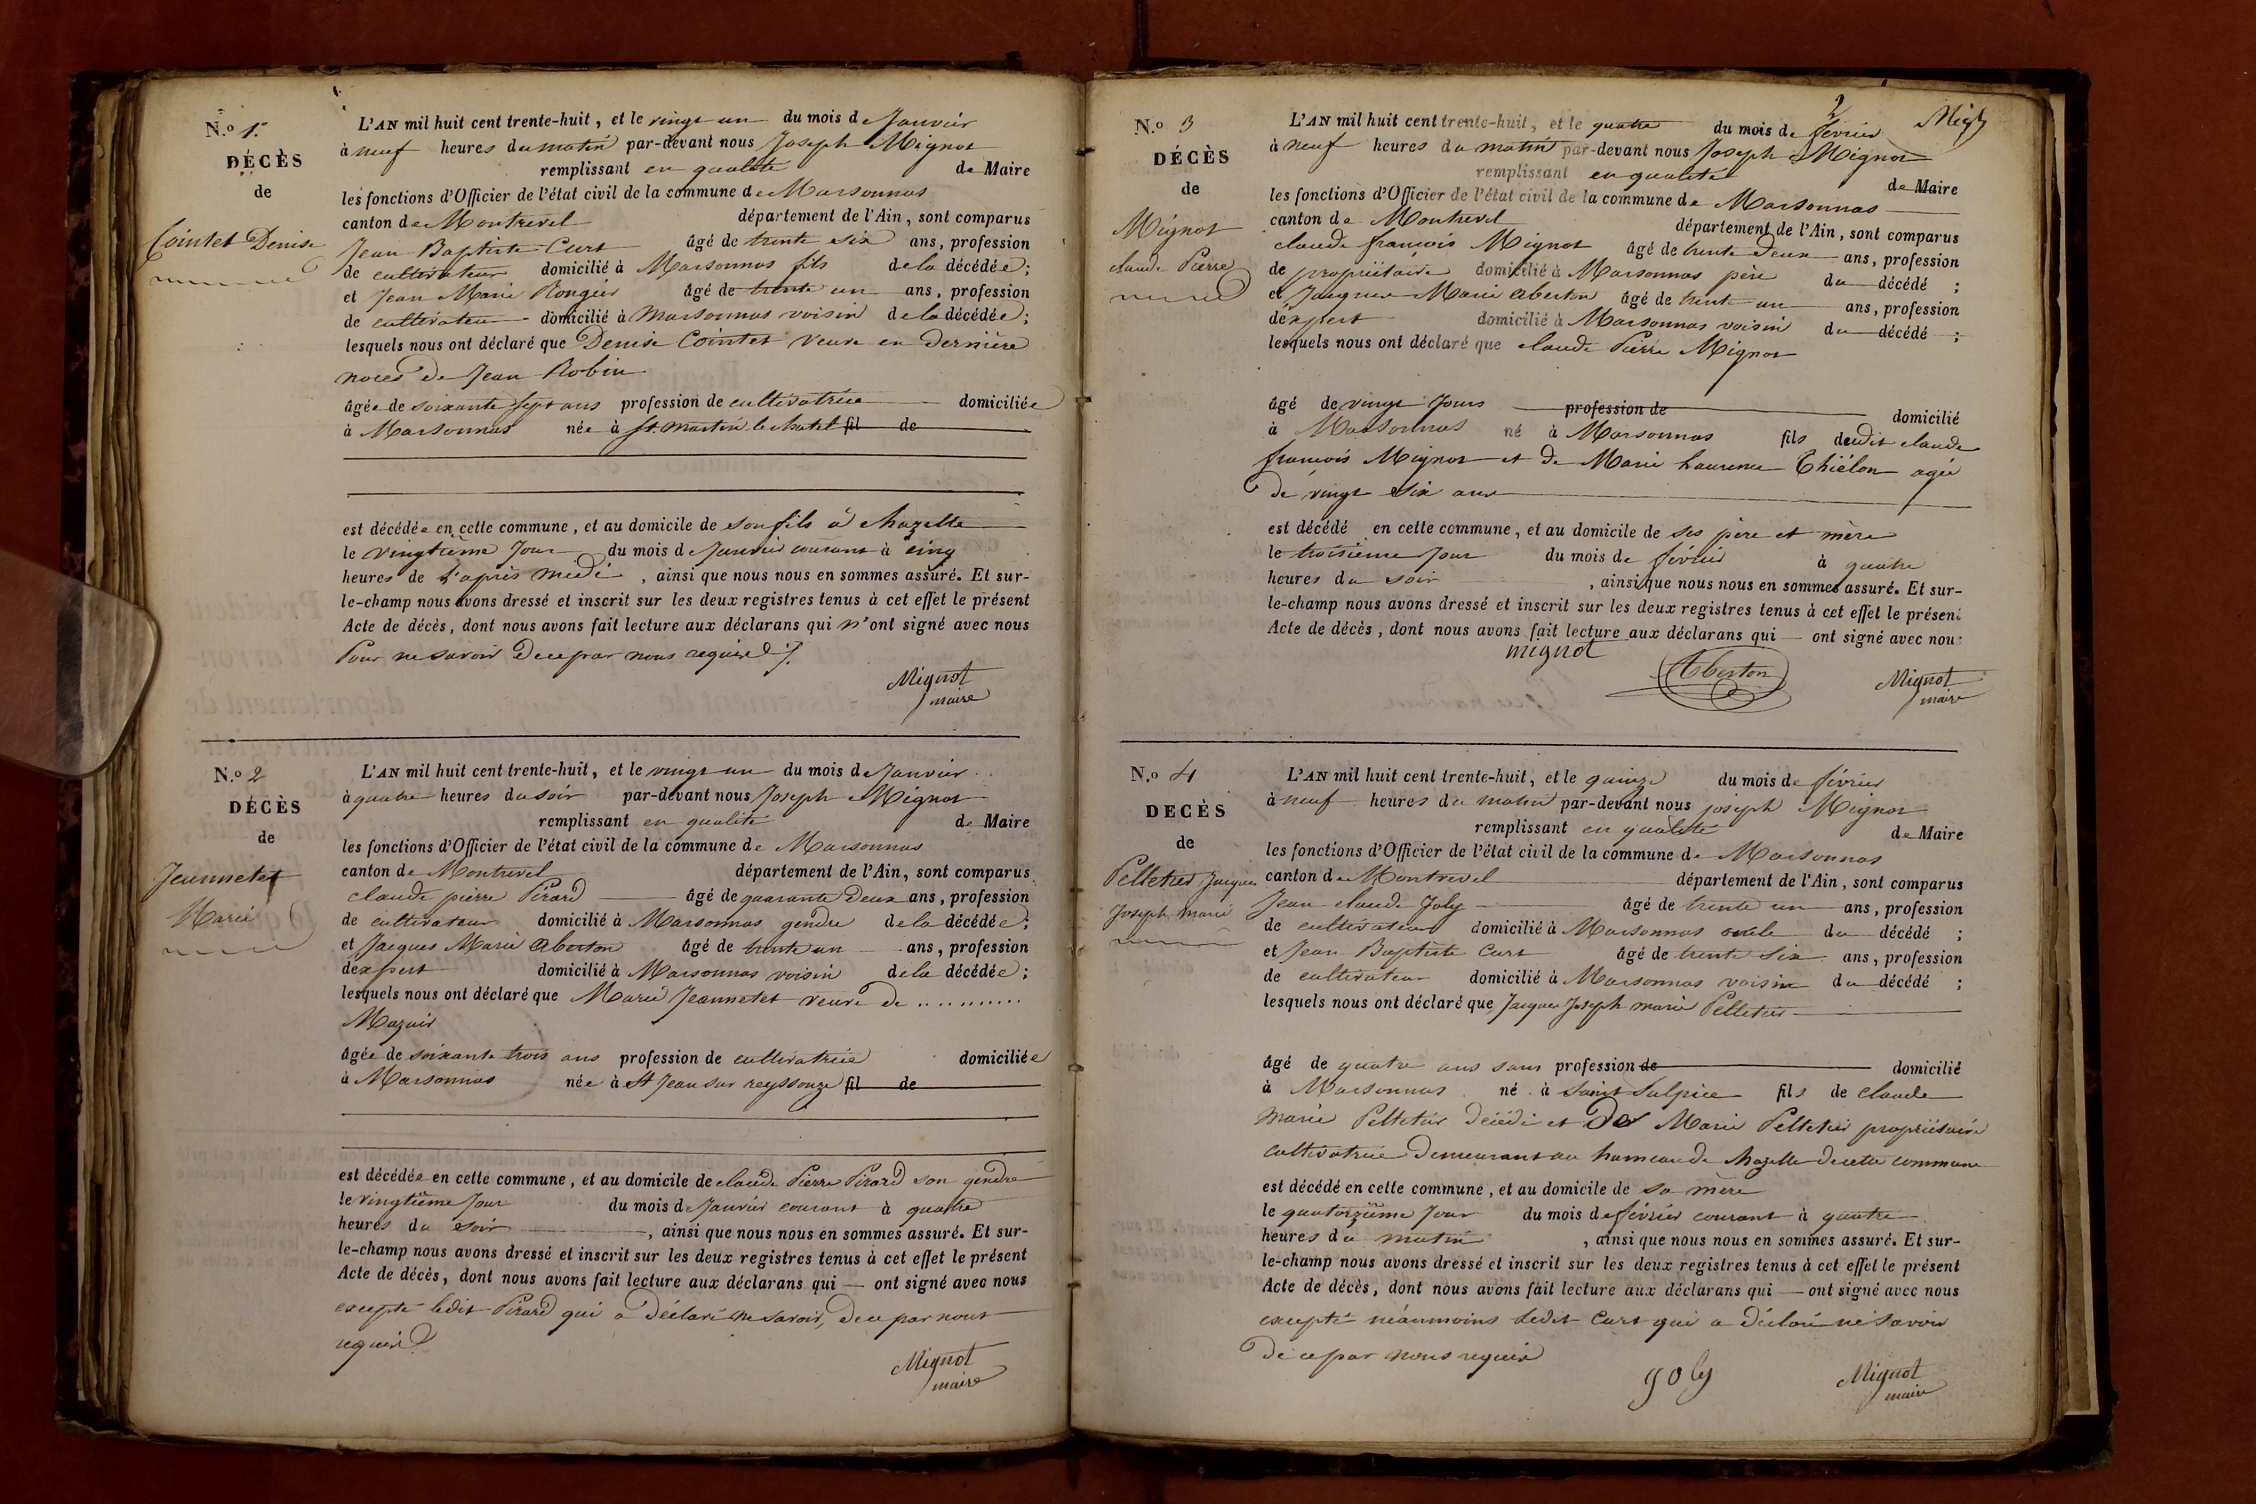 N.o 1.
DÉCÈS
de
Cointet Denise
L'AN mil huit cent trente-huit, et le vingt un du mois de Janvier
à neuf heures du matin par-devant nous Joseph Mignot
remplissant en qualité de Maire
les fonctions d'Officier de l'état civil de la commune de Marsonnas
canton de Montrevel département de l'Ain, sont comparus
Jean Baptiste Curt âgé de trente six ans, profession
de cultivateur domicilié à Marsonnas fils de la décédée;
et Jean Marie Rongier âgé de trente un ans, profession
de cultivateur domicilié à Marsonnas voisin de la décédée;
lesquels nous ont déclaré que Denise Cointet veuve en dernière
noces de Jean Robin
âgée de soixante sept ans profession de cultivatrice domiciliée
à Marsonnas née à St. Martin le chatel fil de
est décédée en cette commune, et au domicile de son fils à chazelle
le vingtième jour du mois de Janvier courant à cinq
heures de l'après midi, ainsi que nous nous en sommes assuré. Et sur-
le-champ nous avons dressé et inscrit sur les deux registres tenus à cet effet le présent
Acte de décès, dont nous avons fait lecture aux déclarans qui n'ont signé avec nous
pour ne savoir de ce par nous requis
Mignot
maire
N.o 2
DÉCÈS
de
Jeannetet
Marie
L'AN mil huit cent trente-huit, et le vingt un du mois de Janvier
à quatre heures du soir par-devant nous Joseph Mignot
remplissant en qualité de Maire
les fonctions d'Officier de l'état civil de la commune de Marsonnas
canton de Montrevel département de l'Ain, sont comparus
claude pierre Pirard âgé de quarante deux ans, profession
de cultivateur domicilié à Marsonnas gendre de la décédée;
et Jacques Marie Aberton âgé de trente un ans, profession
d'expert domicilié à Marsonnas voisin de la décédée;
lesquels nous ont déclaré que Marie Jeannetet veuve de ...........
Mazuir
âgée de soixante trois ans profession de cultivatrice domiciliée
à Marsonnas née à St Jean sur reyssouze fil de
est décédée en cette commune, et au domicile de claude Pierre Pirard son gendre
le vingtième jour du mois de Janvier courant à quatre
heures du soir, ainsi que nous nous en sommes assuré. Et sur-
le-champ nous avons dressé et inscrit sur les deux registres tenus à cet effet le présent
Acte de décès, dont nous avons fait lecture aux déclarans qui ont signé avec nous
excepté ledit Pirard qui a déclaré ne savoir, de ce par nous
requis
Mignot
maire
2
N.o 3
DÉCÈS
de
Mignot
claude Pierre
L'AN mil huit cent trente-huit, et le quatre du mois de février
à neuf heures du matin par-devant nous Joseph Mignot
remplissant en qualité de Maire
les fonctions d'Officier de l'état civil de la commune de Marsonnas
canton de Montrevel département de l'Ain, sont comparus
claude françois Mignot âgé de trente deux ans, profession
de propriétaire domicilié à Marsonnas père du décédé;
et Jacques Marie Aberton âgé de trente un ans, profession
d'expert domicilié à Marsonnas voisin du décédé;
lesquels nous ont déclaré que claude Pierre Mignot
âgé de vingt jours profession de domicilié
à Marsonnas né à Marsonnas fils dudit claude
françois Mignot et de Marie Laurence Thiélon agée
de vingt six ans
est décédé en cette commune, et au domicile de ses père et mère
le troisième jour du mois de février à quatre
heures du soir, ainsi que nous nous en sommes assuré. Et sur-
le-champ nous avons dressé et inscrit sur les deux registres tenus à cet effet le présent
Acte de décès, dont nous avons fait lecture aux déclarans qui ont signé avec nous
mignot
Aberton
Mignot
maire
N.o 4
DÉCÈS
de
Pelletier Jacques
Joseph marie
L'AN mil huit cent trente-huit, et le quinze du mois de février
à neuf heures du matin par-devant nous joseph Mignot
remplissant en qualité de Maire
les fonctions d'Officier de l'état civil de la commune de Marsonnas
canton de Montrevel département de l'Ain, sont comparus
Jean claude Joly âgé de trente un ans, profession
de cultivateur domicilié à Marsonnas oncle du décédé;
et Jean Baptiste Curt âgé de trente six ans, profession
de cultivateur domicilié à Marsonnas voisin du décédé;
lesquels nous ont déclaré que Jacques Joseph marie Pelletier
âgé de quatre ans sans profession de domicilié
à Marsonnas né à Saint Sulpice fils de claude
marie Pelletier décédé et de Marie Pelletier propriétaire
cultivatrice demeurant au hameau de chazelle de cette commune
est décédé en cette commune, et au domicile de sa mère
le quatorzième jour du mois de février courant à quatre
heures du matin, ainsi que nous nous en sommes assuré. Et sur-
le-champ nous avons dressé et inscrit sur les deux registres tenus à cet effet le présent
Acte de décès, dont nous avons fait lecture aux déclarans qui ont signé avec nous
excepté néanmoins ledit Curt qui a déclaré ne savoir
de ce par nous requis
Joly
Mignot
maire